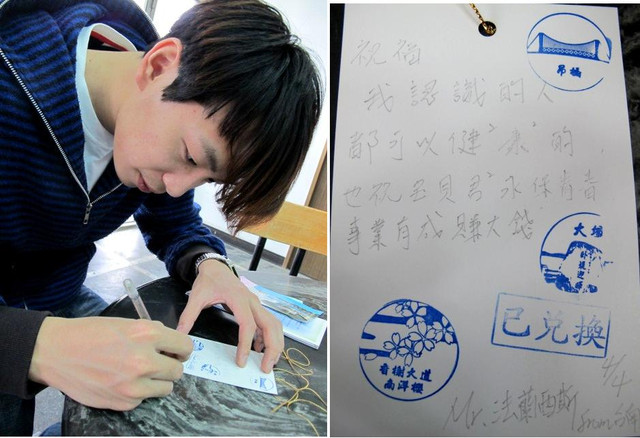 祝福
我認識的人
都可以健康的,
也祝宝貝君永保青春
事業有成賺大錢
吊橋
已兌換
香榭大道
南洋櫻
4/4
Mr. 法蘭西斯